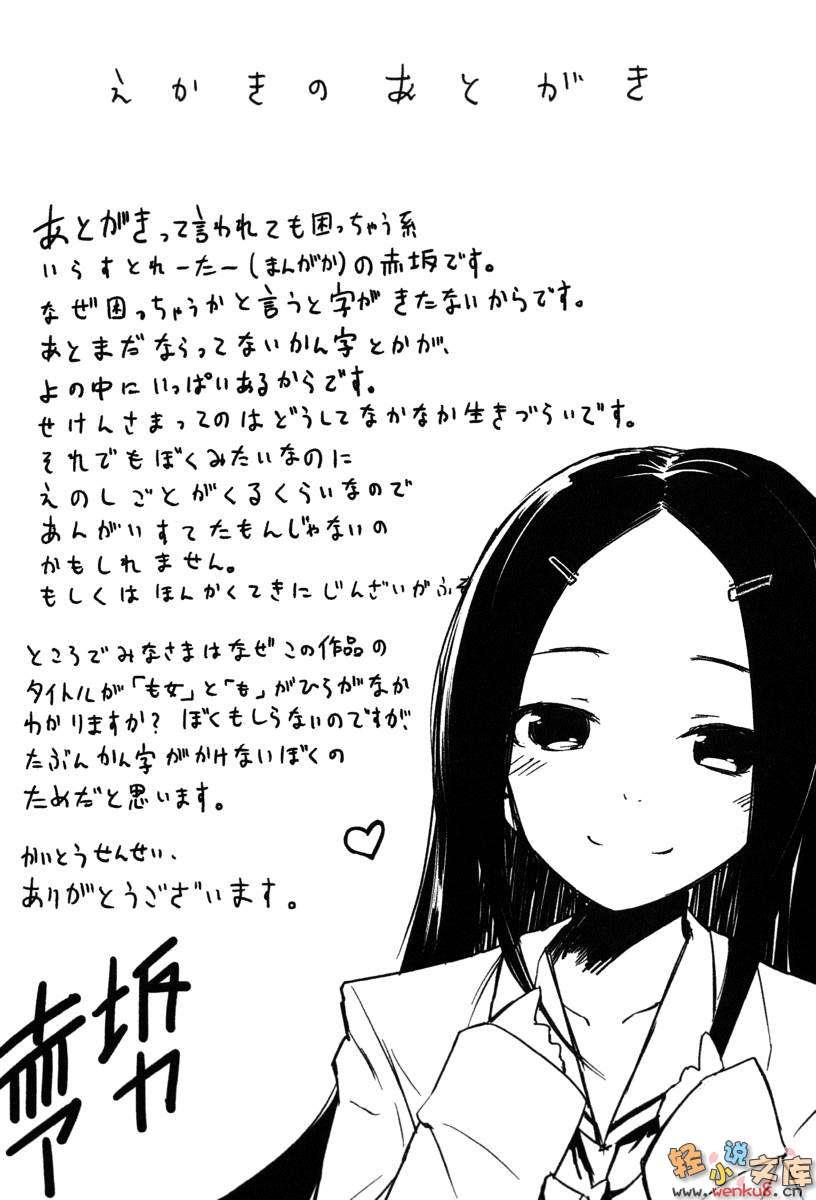 えかきのあとがき
あとがきって言われても困っちゃう系
いらすとれーたー(まんがか)の赤坂です。
なぜ困っちゃうかと言うと字がきたないからです。
あとまだならってないかん字とかが、
よの中にいっぱいあるからです。
せけんさまってのはどうしてなかなか生きづらいです。
それでもぼくみたいなのに
えのしごとがくるくらいなので
あんがいすてたもんじゃないの
かもしれません。
もしくはほんかくてきにじんざいがふ
ところでみなさまはなぜこの作品の
タイトルが「も女」と「も」がひらがなか
わかりますか?ぼくもしらないのですが、
たぶんかん字がかけないぼくの
ためだと思います。
かいとうせんせい、
ありがとうございます。
赤坂アカ
轻小说文库
www.wenku8.cn